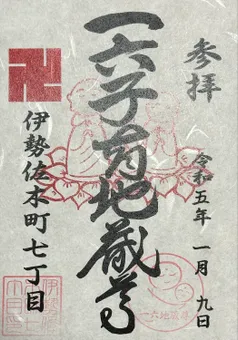 参拝
令和五年 一月 九日
一六子育地蔵尊
伊勢佐木町七丁目
一六地蔵尊